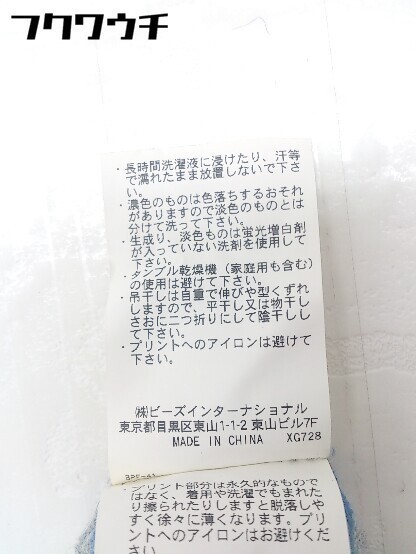 フクワウチ
・長時間洗濯液に浸けたり、汗等
で濡れたまま放置しないで下さ
い。
・濃色のものは色落ちするおそれ
がありますので淡色のものとは
分けて洗って下さい。
・生成り、淡色ものは蛍光増白剤
が入っていない洗剤を使用して
下さい。
・タンブル乾燥機（家庭用も含む）
の使用は避けて下さい。
・吊干しは自重で伸びや型くずれ
しますので、平干し又は物干し
さおに二つ折りにして陰干しし
て下さい。
・プリントへのアイロンは避けて
下さい。
㈱ビーズインターナショナル
東京都目黒区東山1-1-2 東山ビル7F
MADE IN CHINA XG728
プリント部分は永久的なもので
はなく、着用や洗濯でもまれた
り擦られたりしますと脱落しや
すく徐々に薄くなります。プリ
ントへのアイロンはお避けくだ
さい